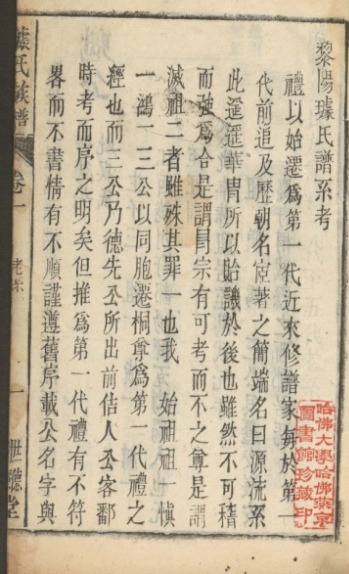 黎陽璩氏譜系考
禮以始遷爲第一代近來修譜家每於第一
代前追及歷朝名宦著之簡端名曰源流系
此遥遥華胄所以貽譏於後也雖然不可稽
而強爲合是謂冒宗有可考而不之尊是謂
滅祖二者雖殊其罪一也我 始祖祖一慎
一鴻一三公以同胞遷桐尊爲第一代禮之
經也而三公乃德先公所出前估人公客鄱
時考而序之明矣但推爲第一代禮有不符
畧而不書情有不順謹遵舊序載公名字與
璩氏族譜
卷一
世聽堂
哈佛大學哈佛燕京
圖書館珍藏印